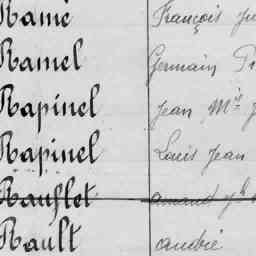 Ramé François
Ramel Germain
Rapinel Jean M.
Rapinel Louis Jean
Rault André